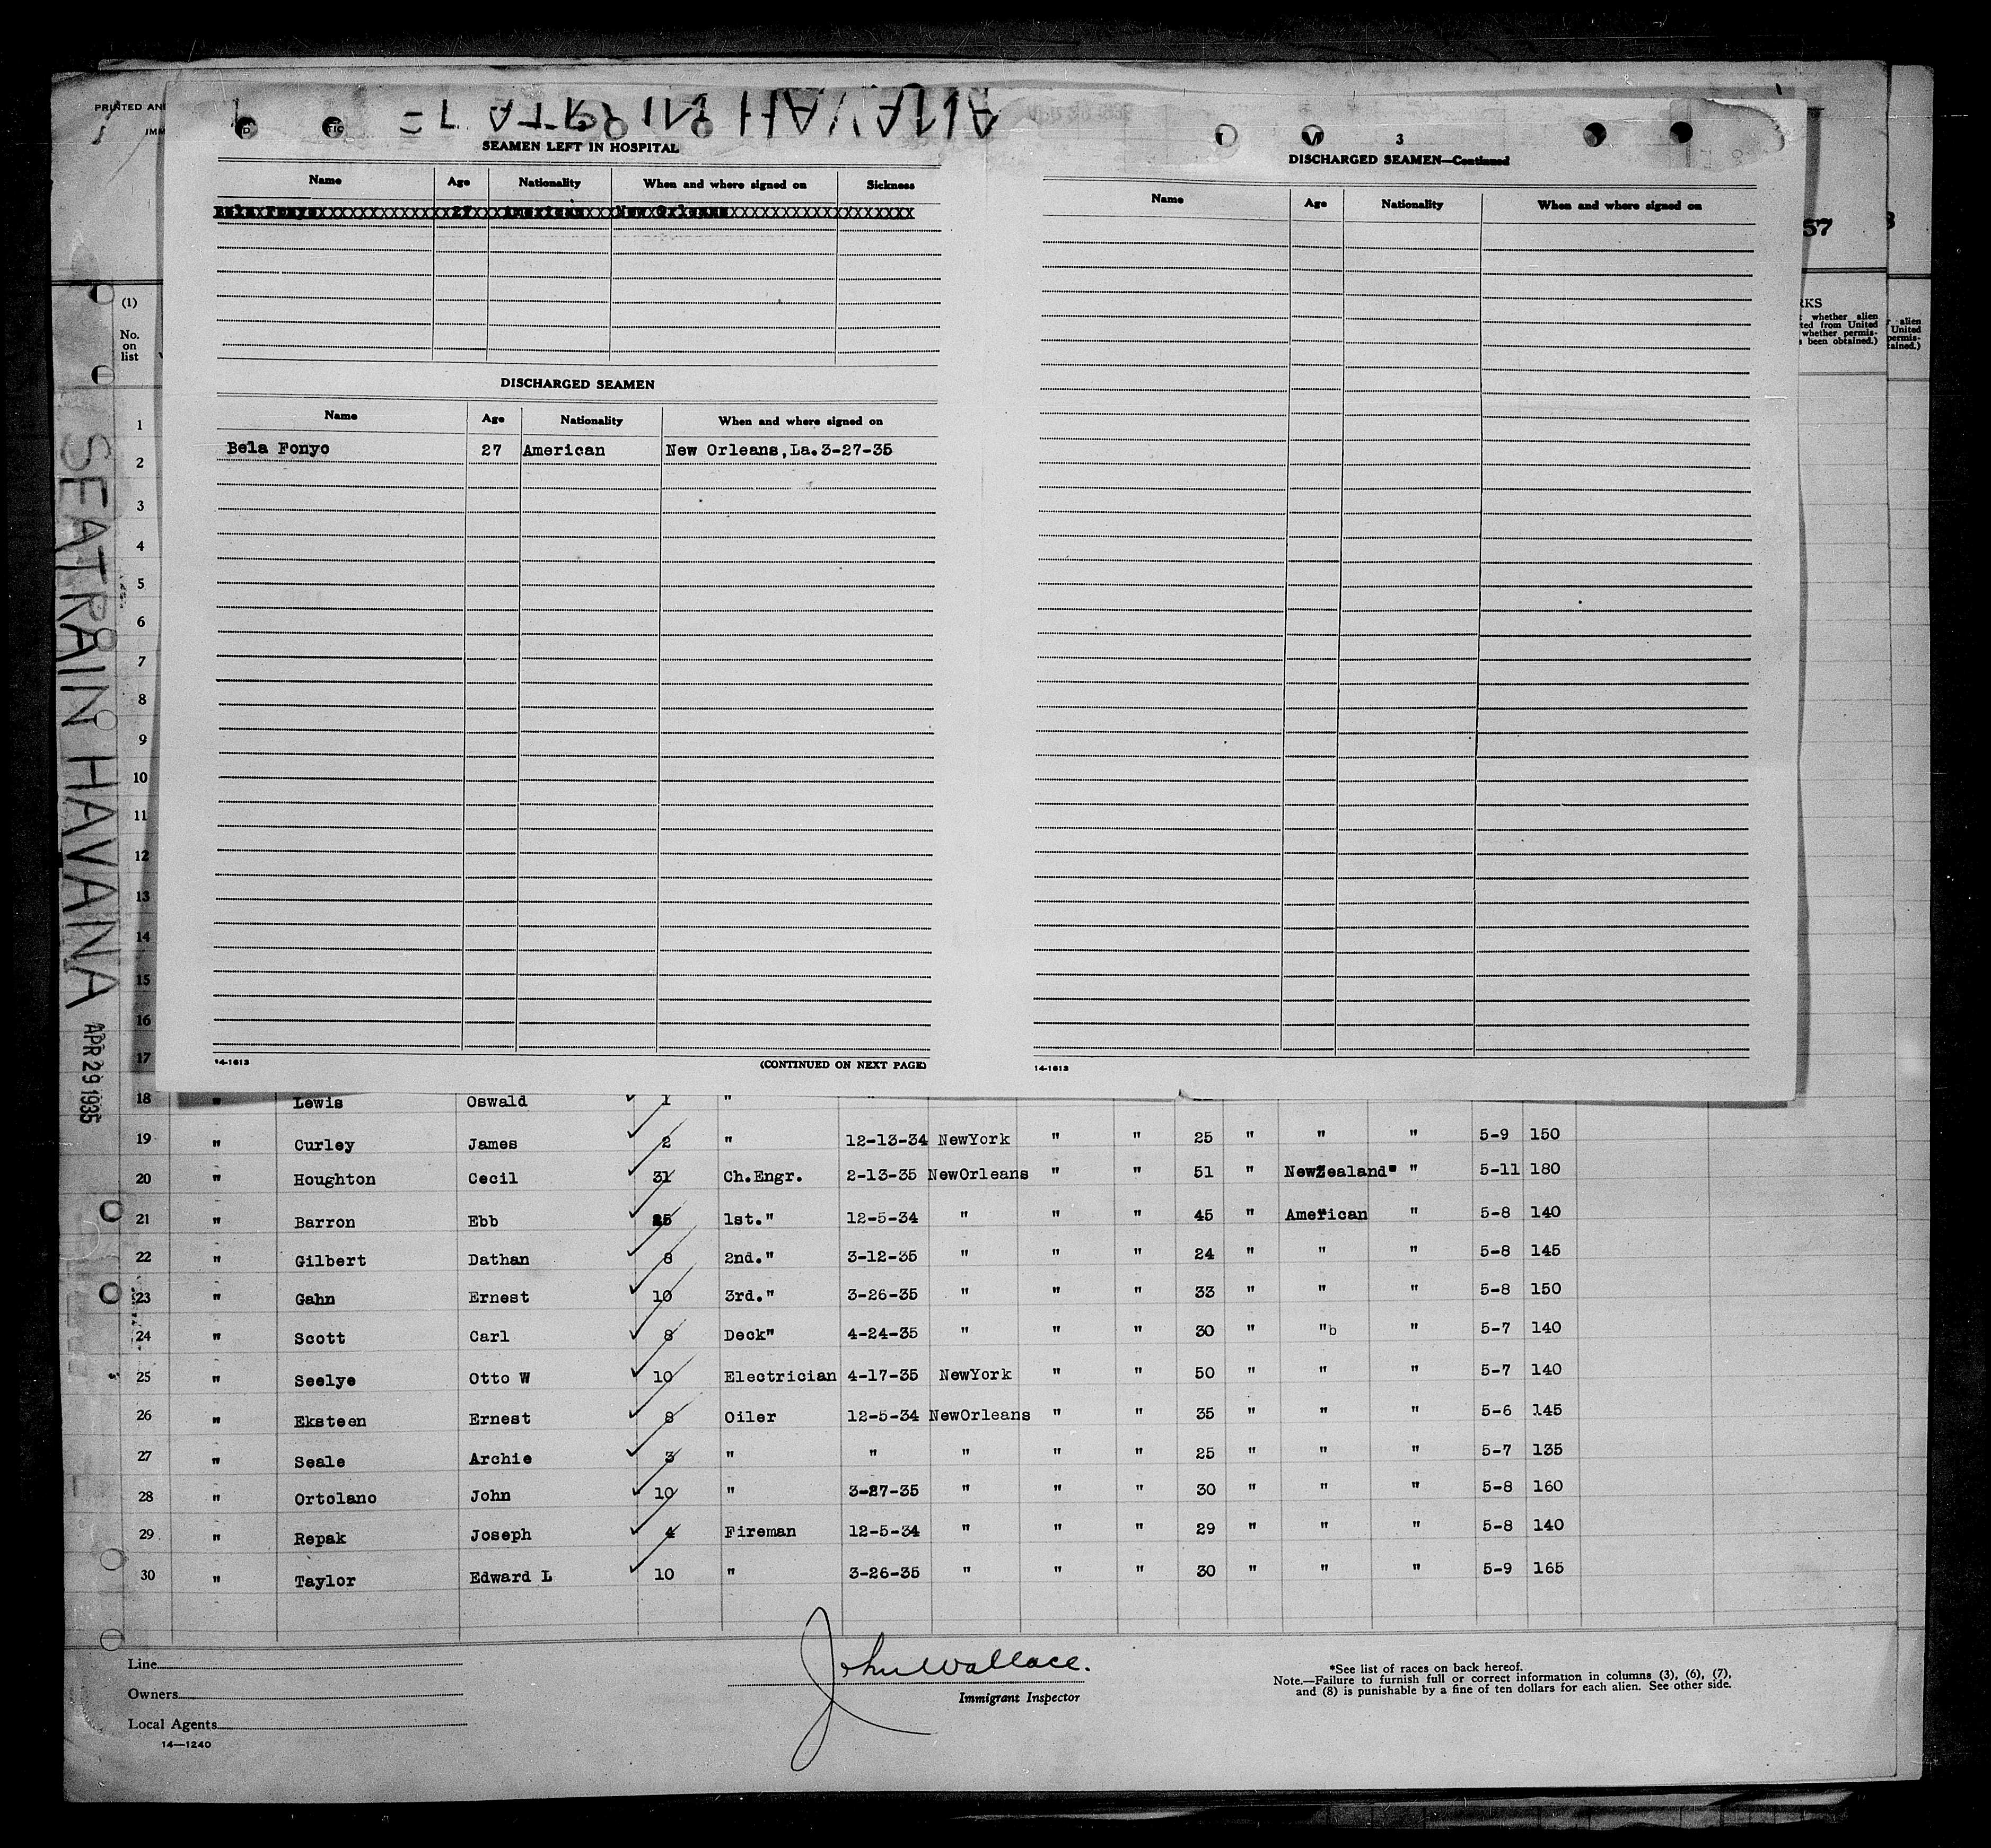 PRINTED AN
IMM
SEATRAIN HAVANA
SEAMEN LEFT IN HOSPITAL
Name Age Nationality When and where signed on Sickness
Bela Fonyo 27 American New Orleans
DISCHARGED SEAMEN
Name Age Nationality When and where signed on
Bela Fonyo 27 American New Orleans, La. 3-27-35
(CONTINUED ON NEXT PAGE)
14-1613
3
DISCHARGED SEAMEN—Continued
Name Age Nationality When and where signed on
14-1613
57
RKS
whether alien
ted from United
whether permis-
been obtained.)
alien
United
permis-
tained.)
(1)
No.
on
list
1
2
3
4
5
6
7
8
9
10
11
12
13
14
15
16
17
SEATRAIN HAVANA APR 29 1935
18 " Lewis Oswald 1 "
19 " Curley James 2 " 12-13-34 NewYork " " 25 " " " 5-9 150
20 " Houghton Cecil 31 Ch.Engr. 2-13-35 NewOrleans " " 51 " NewZealand " 5-11 180
21 " Barron Ebb 25 1st." 12-5-34 " " " 45 " American " 5-8 140
22 " Gilbert Dathan 8 2nd." 3-12-35 " " " 24 " " " 5-8 145
23 " Gahn Ernest 10 3rd." 3-26-35 " " " 33 " " " 5-8 150
24 " Scott Carl 8 Deck" 4-24-35 " " " 30 " "b " 5-7 140
25 " Seelye Otto W 10 Electrician 4-17-35 NewYork " " 50 " " " 5-7 140
26 " Eksteen Ernest 8 Oiler 12-5-34 NewOrleans " " 35 " " " 5-6 145
27 " Seale Archie 3 " " " " " 25 " " " 5-7 135
28 " Ortolano John 10 " 3-27-35 " " " 30 " " " 5-8 160
29 " Repak Joseph 4 Fireman 12-5-34 " " " 29 " " " 5-8 140
30 " Taylor Edward L 10 " 3-26-35 " " " 30 " " " 5-9 165
Line
Owners
Local Agents
14—1240
John Wallace.
Immigrant Inspector
*See list of races on back hereof.
Note.—Failure to furnish full or correct information in columns (3), (6), (7),
and (8) is punishable by a fine of ten dollars for each alien. See other side.